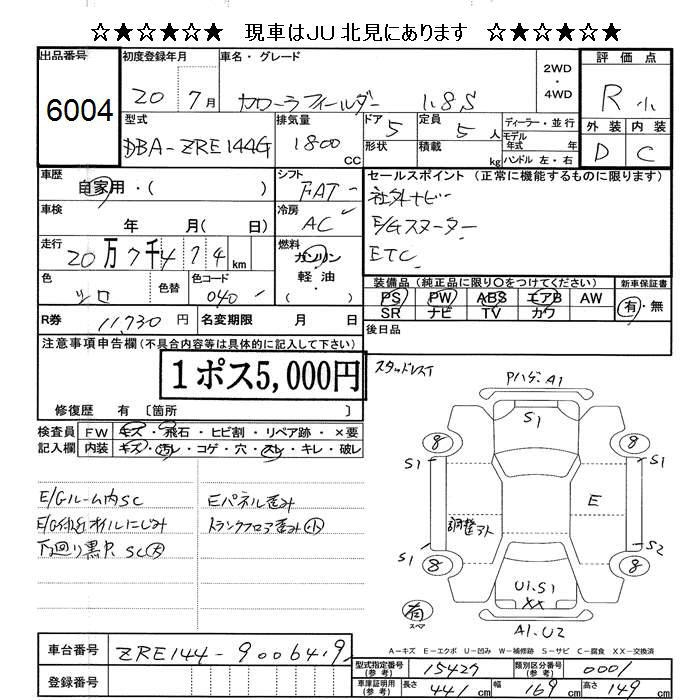 ☆★☆★☆★ 現車はJU北見にあります ☆★☆★☆★
出品番号 6004
初度登録年月 20 7月
車名・グレード カローラフィールダー 1.8S
2WD ・ 4WD
評価点 R 小
外装 D 内装 C
型式 DBA-ZRE144G
排気量 1800 CC
ドア 5 形状
定員 5 人 積載 kg
ディーラー・並行
モデル年式 年式
ハンドル 左・右
車歴 自家用・( )
シフト FAT
セールスポイント (正常に機能するものに限ります)
社外ナビー
E/Gスターター
ETC
車検 年 月( 日)
冷房 AC
走行 20万7千474km
燃料 ガソリン 軽油
色 シロ 色替 色コード 040
装備品(純正品に限り○をつけてください)
PS PW ABS エアB AW
SR ナビ TV カワ
新車保証書 有・無
R券 11,730円 名変期限 月 日
後日品
注意事項申告欄(不具合内容等は具体的に記入して下さい)
1ポス5,000円
修復歴 有〔箇所 〕
スタッドレスT
検査員記入欄 FW キズ・飛石・ヒビ割・リペア跡・×要
内装 キズ・汚レ・コゲ・穴・スレ・キレ・破レ
E/Gルーム内SC
Eパネル歪み
トランクフロア歪み小
下廻り黒P SC大
Pハゲ・A1
S1
8 8
S1 S1
E
調整アト
S1 S2
8 8
U1.S1
XX
有 スペア
A1.U2
A-キズ E-エクボ U-凹み W-補修跡 S-サビ C-腐食 XX-交換済
車台番号 ZRE144-9006419
登録番号
型式指定番号(参考) 15427 類別区分番号(参考) 0001
車庫証明用(参考) 長さ 441cm 幅 169cm 高さ 149cm